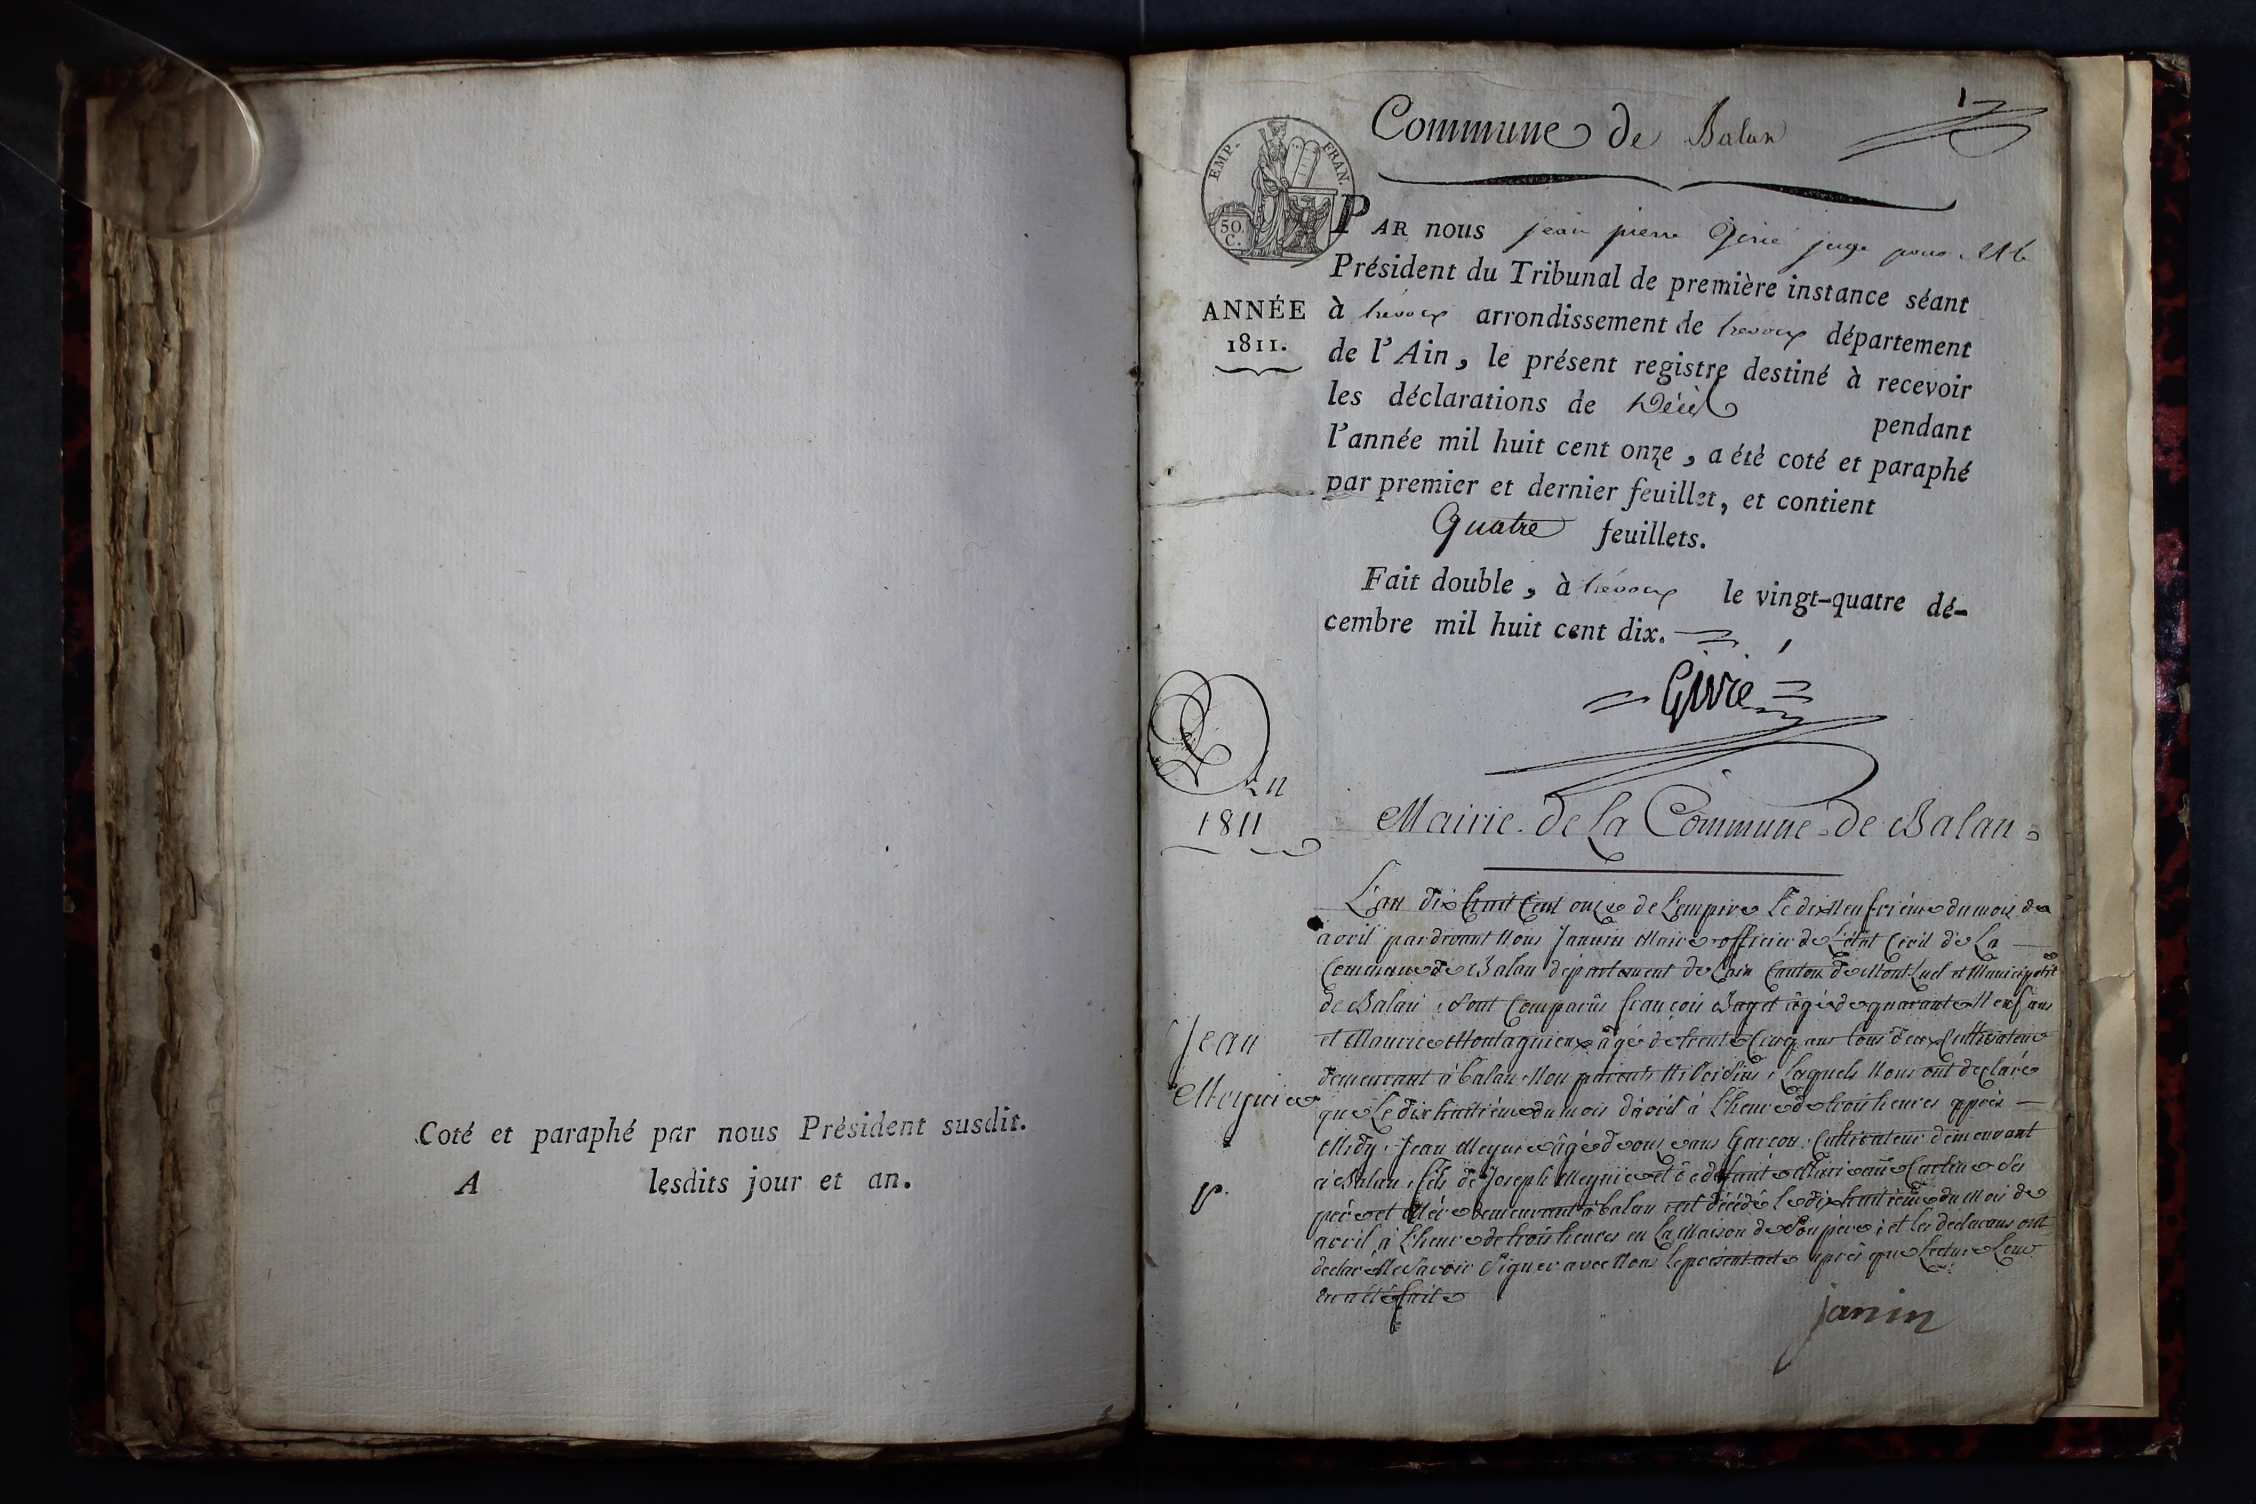 Coté et paraphé par nous Président susdit.
A lesdits jour et an.
1
Commune de Balan
EMP. FRAN.
50 C.
PAR nous jean pierre Givré juge pour
Président du Tribunal de première instance séant
ANNÉE
1811.
à trévoux arrondissement de trévoux département
de l'Ain, le présent registre destiné à recevoir
les déclarations de Décès pendant
l'année mil huit cent onze, a été coté et paraphé
par premier et dernier feuillet, et contient
Quatre feuillets.
Fait double, à trévoux le vingt-quatre dé-
cembre mil huit cent dix.
Givré
1811
Mairie de la Commune de Balan
L'an dix huit Cent onze de L'empire Le dix Neufvième du mois de
avril pardevant Nous Jannin Maire officier de L'état Civil de La
Commune de Balan département de L'ain Canton de Mont Luel et Municipalité
de Balan, Sont Comparûs françois Baget âgé de quarante Neuf ans
et Maurice Montagnieux âgé de trente Cinq ans tous deux Cultivateur
demeurant à balan Non parents Ni voisins, Laquels Nous ont declaré
que Le dix huitième du mois d'avril à L'heure de trois heures après
Midy, Jean Meynie âgé de onze ans Garçon Cultivateur demeurant
à Balan, fils de Joseph Meynie et de défunte Marie anne Ses
père et Mère demeurant à balan est décédé le dix huitième du Mois de
avril à L'heure de trois heures en La Maison de Son père; et les declarans ont
declaré Ne Savoir Signer avec Nous le présent acte après que Lecture Leur
en a été faite
Jean
Meynie
janin